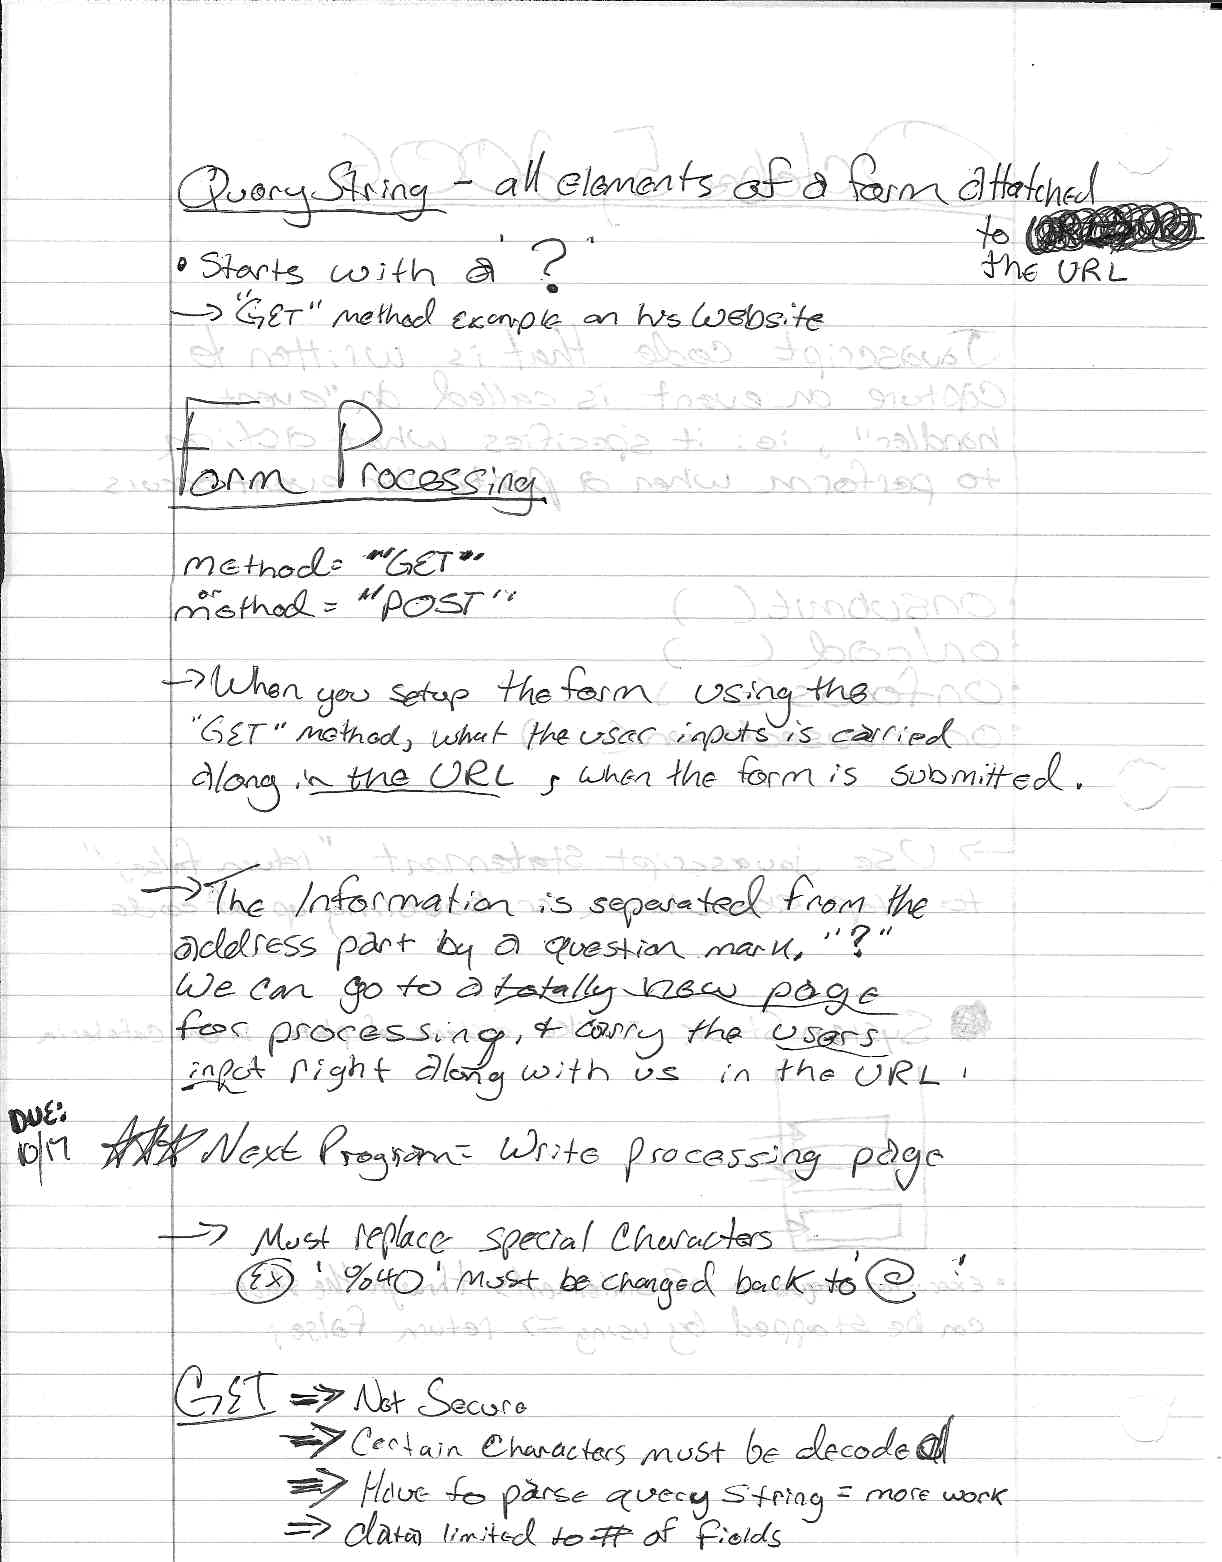 Query String - all elements of a form attatched
to
the URL
• Starts with a '?'
→ "GET" method example on his website
Form Processing
method = "GET"
or
method = "POST"
→ When you setup the form using the
"GET" method, what the user inputs is carried
along in the URL, when the form is submitted.
→ The Information is separated from the
address part by a question mark, "?"
We can go to a totally new page
for processing, & carry the users
input right along with us in the URL.
DUE:
10/17
Next Program = Write processing page
→ Must replace special characters
Ex '%40' must be changed back to '@'
GET ⇒ Not Secure
⇒ Certain characters must be decoded
⇒ Have to parse query string = more work
⇒ data limited to # of fields